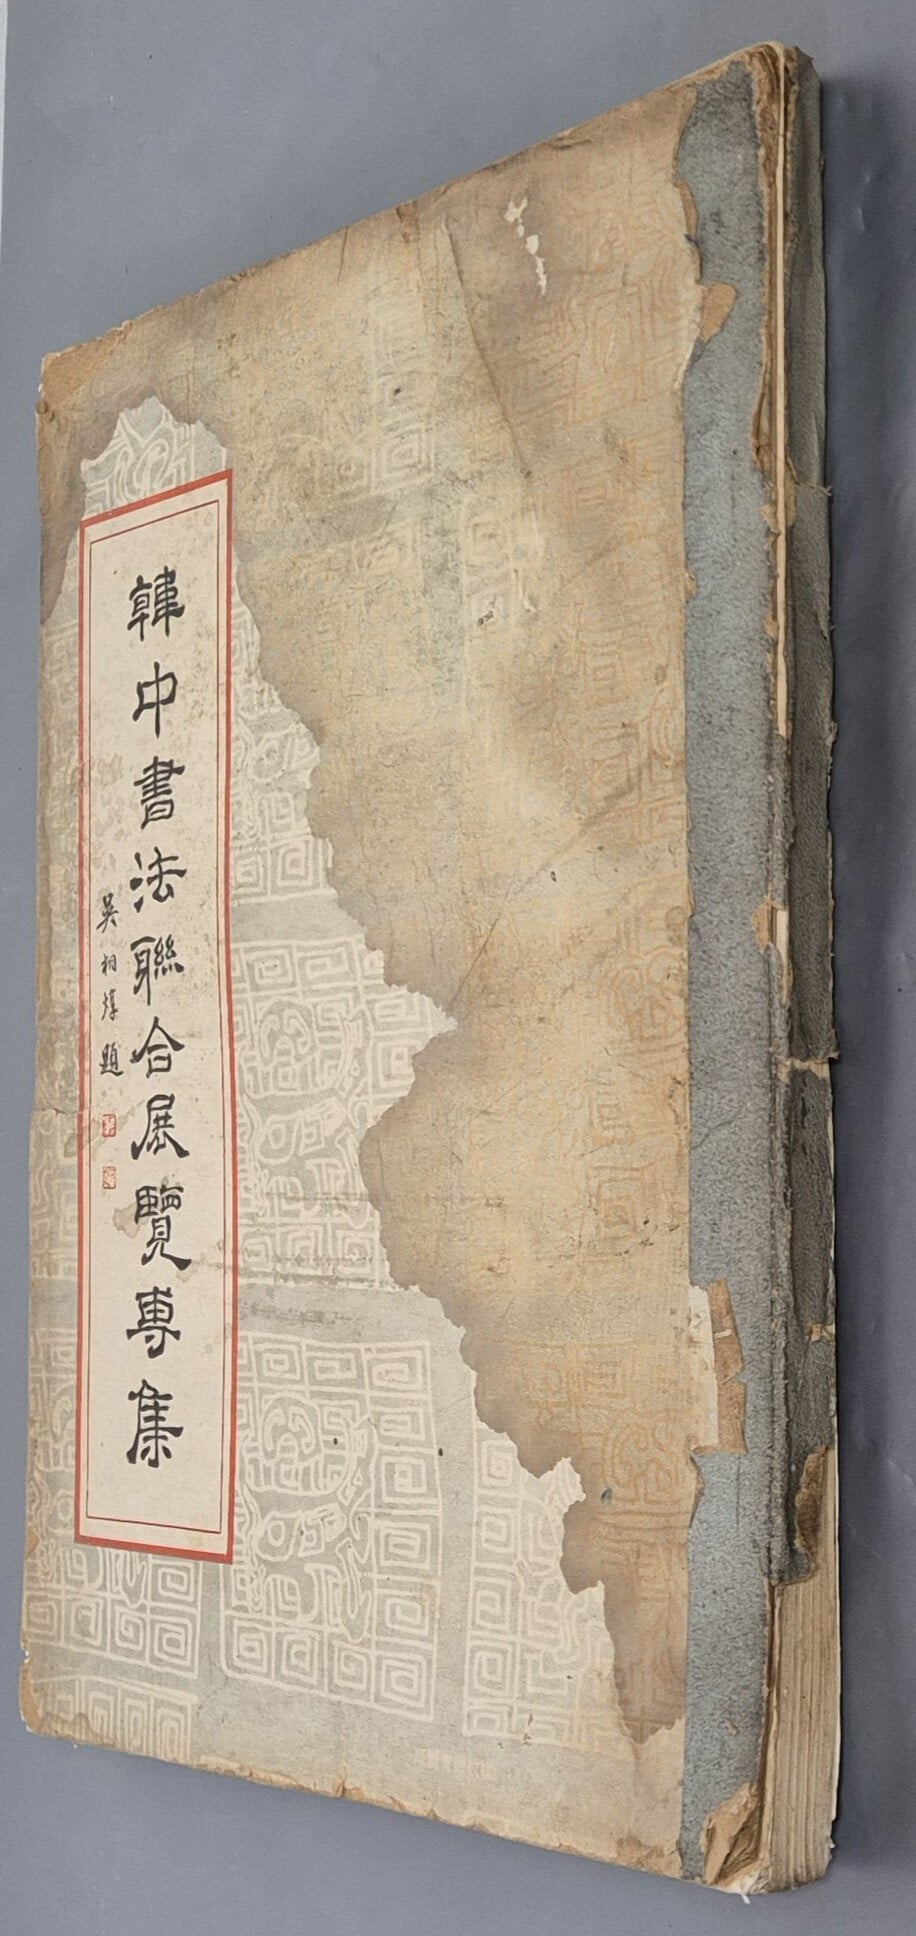 韓中書法聯合展覽專集
吳相淳題